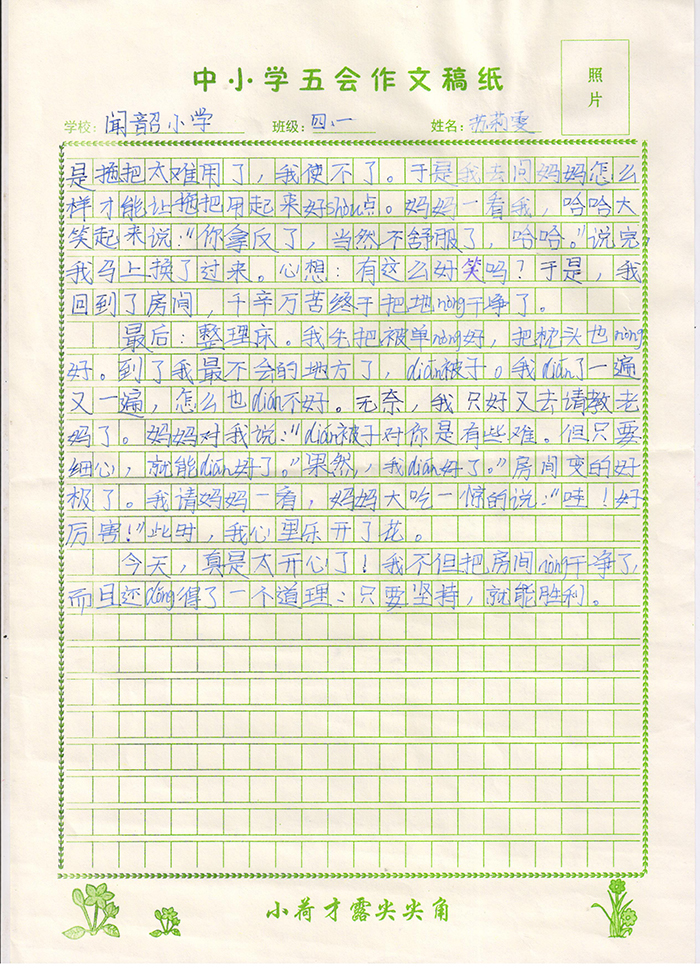 中小学五会作文稿纸
照片
学校：闻韶小学 班级：四、一 姓名：苏莉雯
是拖把太难用了，我使不了。于是我去问妈妈怎么
样才能让拖把用起来好shòu点。妈妈一看我，哈哈大
笑起来说：“你拿反了，当然不舒服了，哈哈。”说完，
我马上换了过来。心想：有这么好笑吗？于是，我
回到了房间，千辛万苦终于把地nòng干净了。
最后：整理床。我先把被单nòng好，把枕头也nòng
好。到了我最不会的地方了，dián被子。我dián了一遍
又一遍，怎么也dián不好。无奈，我只好又去请教老
妈了。妈妈对我说：“dián被子对你是有些难。但只要
细心，就能dián好了。”果然，我dián好了。”房间变的好
极了。我请妈妈一看，妈妈大吃一惊的说：“哇！好
厉害！”此时，我心里乐开了花。
今天，真是太开心了！我不但把房间nòng干净了，
而且还dǒng得了一个道理：只要坚持，就能胜利。
小荷才露尖尖角